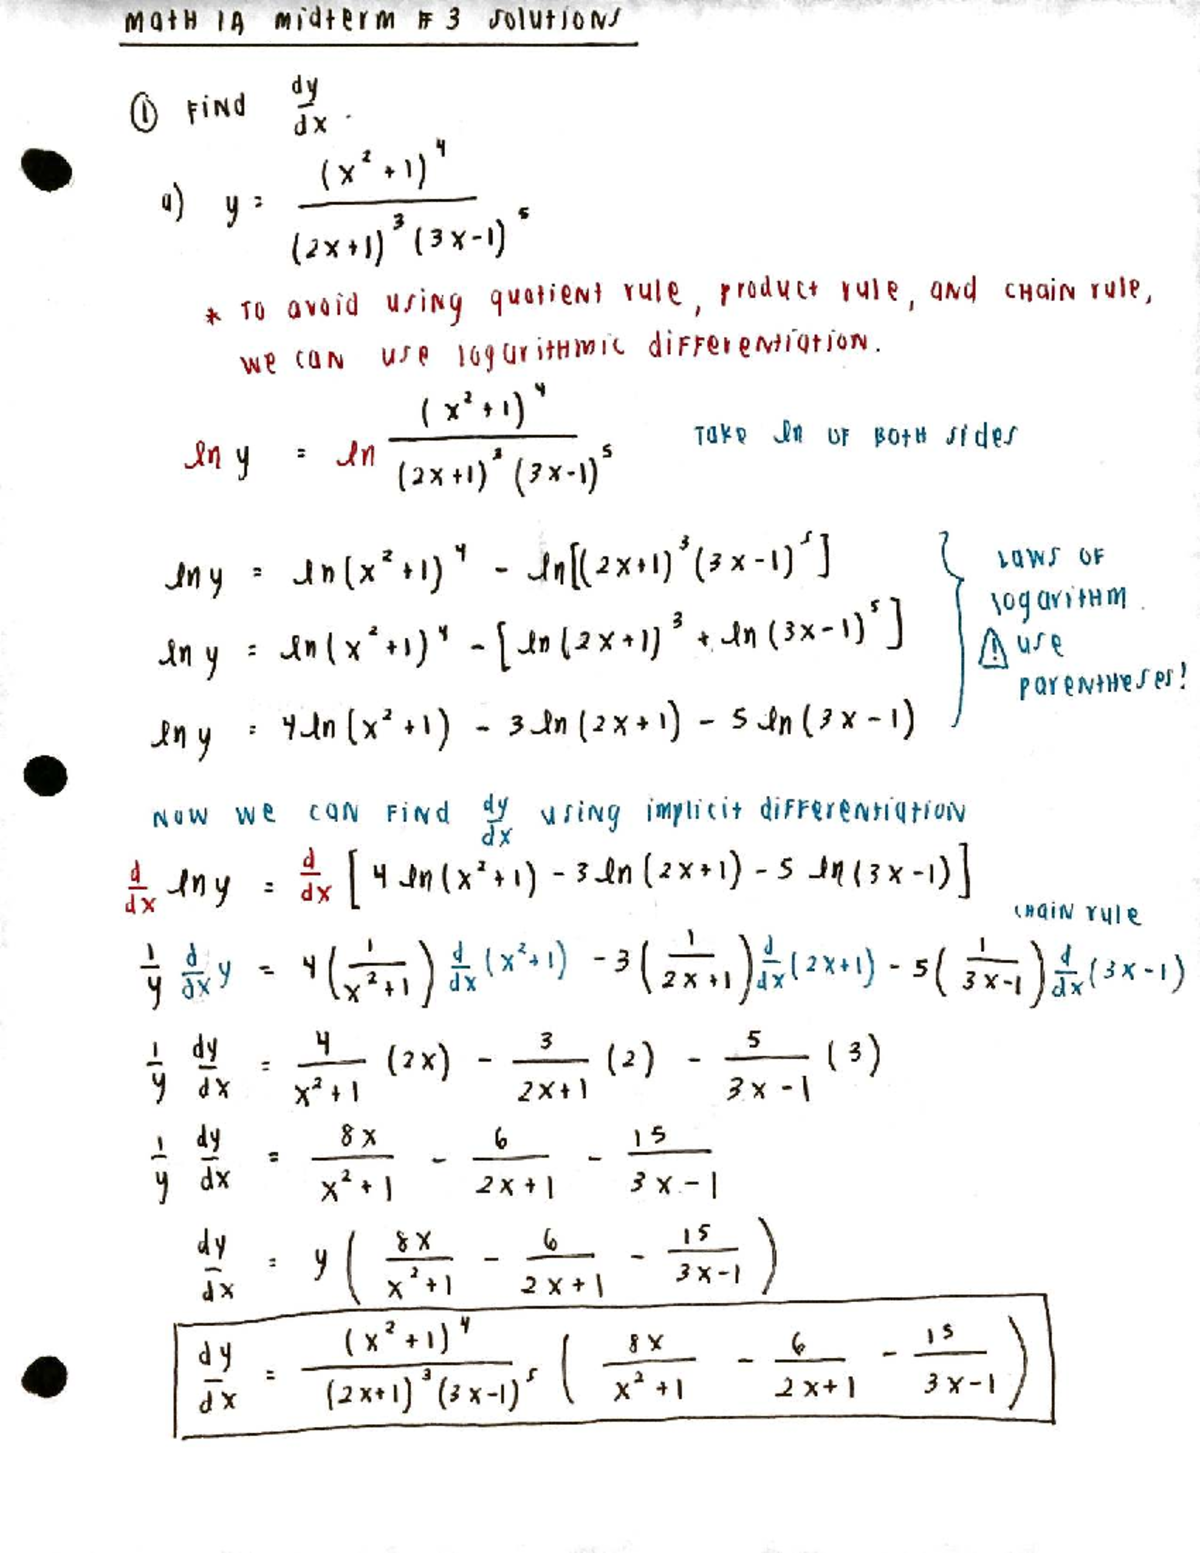 Math 1A midterm #3 solutions
① Find dy/dx.
a) y = (x²+1)⁴ / (2x+1)³(3x-1)⁵
* To avoid using quotient rule, product rule, and chain rule,
we can use logarithmic differentiation.
ln y = ln (x²+1)⁴ / (2x+1)³(3x-1)⁵ Take ln of both sides
ln y = ln(x²+1)⁴ - ln[(2x+1)³(3x-1)⁵]
ln y = ln(x²+1)⁴ - [ln(2x+1)³ + ln(3x-1)⁵]
ln y = 4 ln(x²+1) - 3 ln(2x+1) - 5 ln(3x-1)
} Laws of
logarithm.
⚠ use
parentheses!
Now we can find dy/dx using implicit differentiation
d/dx ln y = d/dx [4 ln(x²+1) - 3 ln(2x+1) - 5 ln(3x-1)]
chain rule
1/y d/dx y = 4(1/(x²+1)) d/dx(x²+1) - 3(1/(2x+1)) d/dx(2x+1) - 5(1/(3x-1)) d/dx(3x-1)
1/y dy/dx = 4/(x²+1) (2x) - 3/(2x+1) (2) - 5/(3x-1) (3)
1/y dy/dx = 8x/(x²+1) - 6/(2x+1) - 15/(3x-1)
dy/dx = y(8x/(x²+1) - 6/(2x+1) - 15/(3x-1))
dy/dx = (x²+1)⁴ / (2x+1)³(3x-1)⁵ (8x/(x²+1) - 6/(2x+1) - 15/(3x-1))